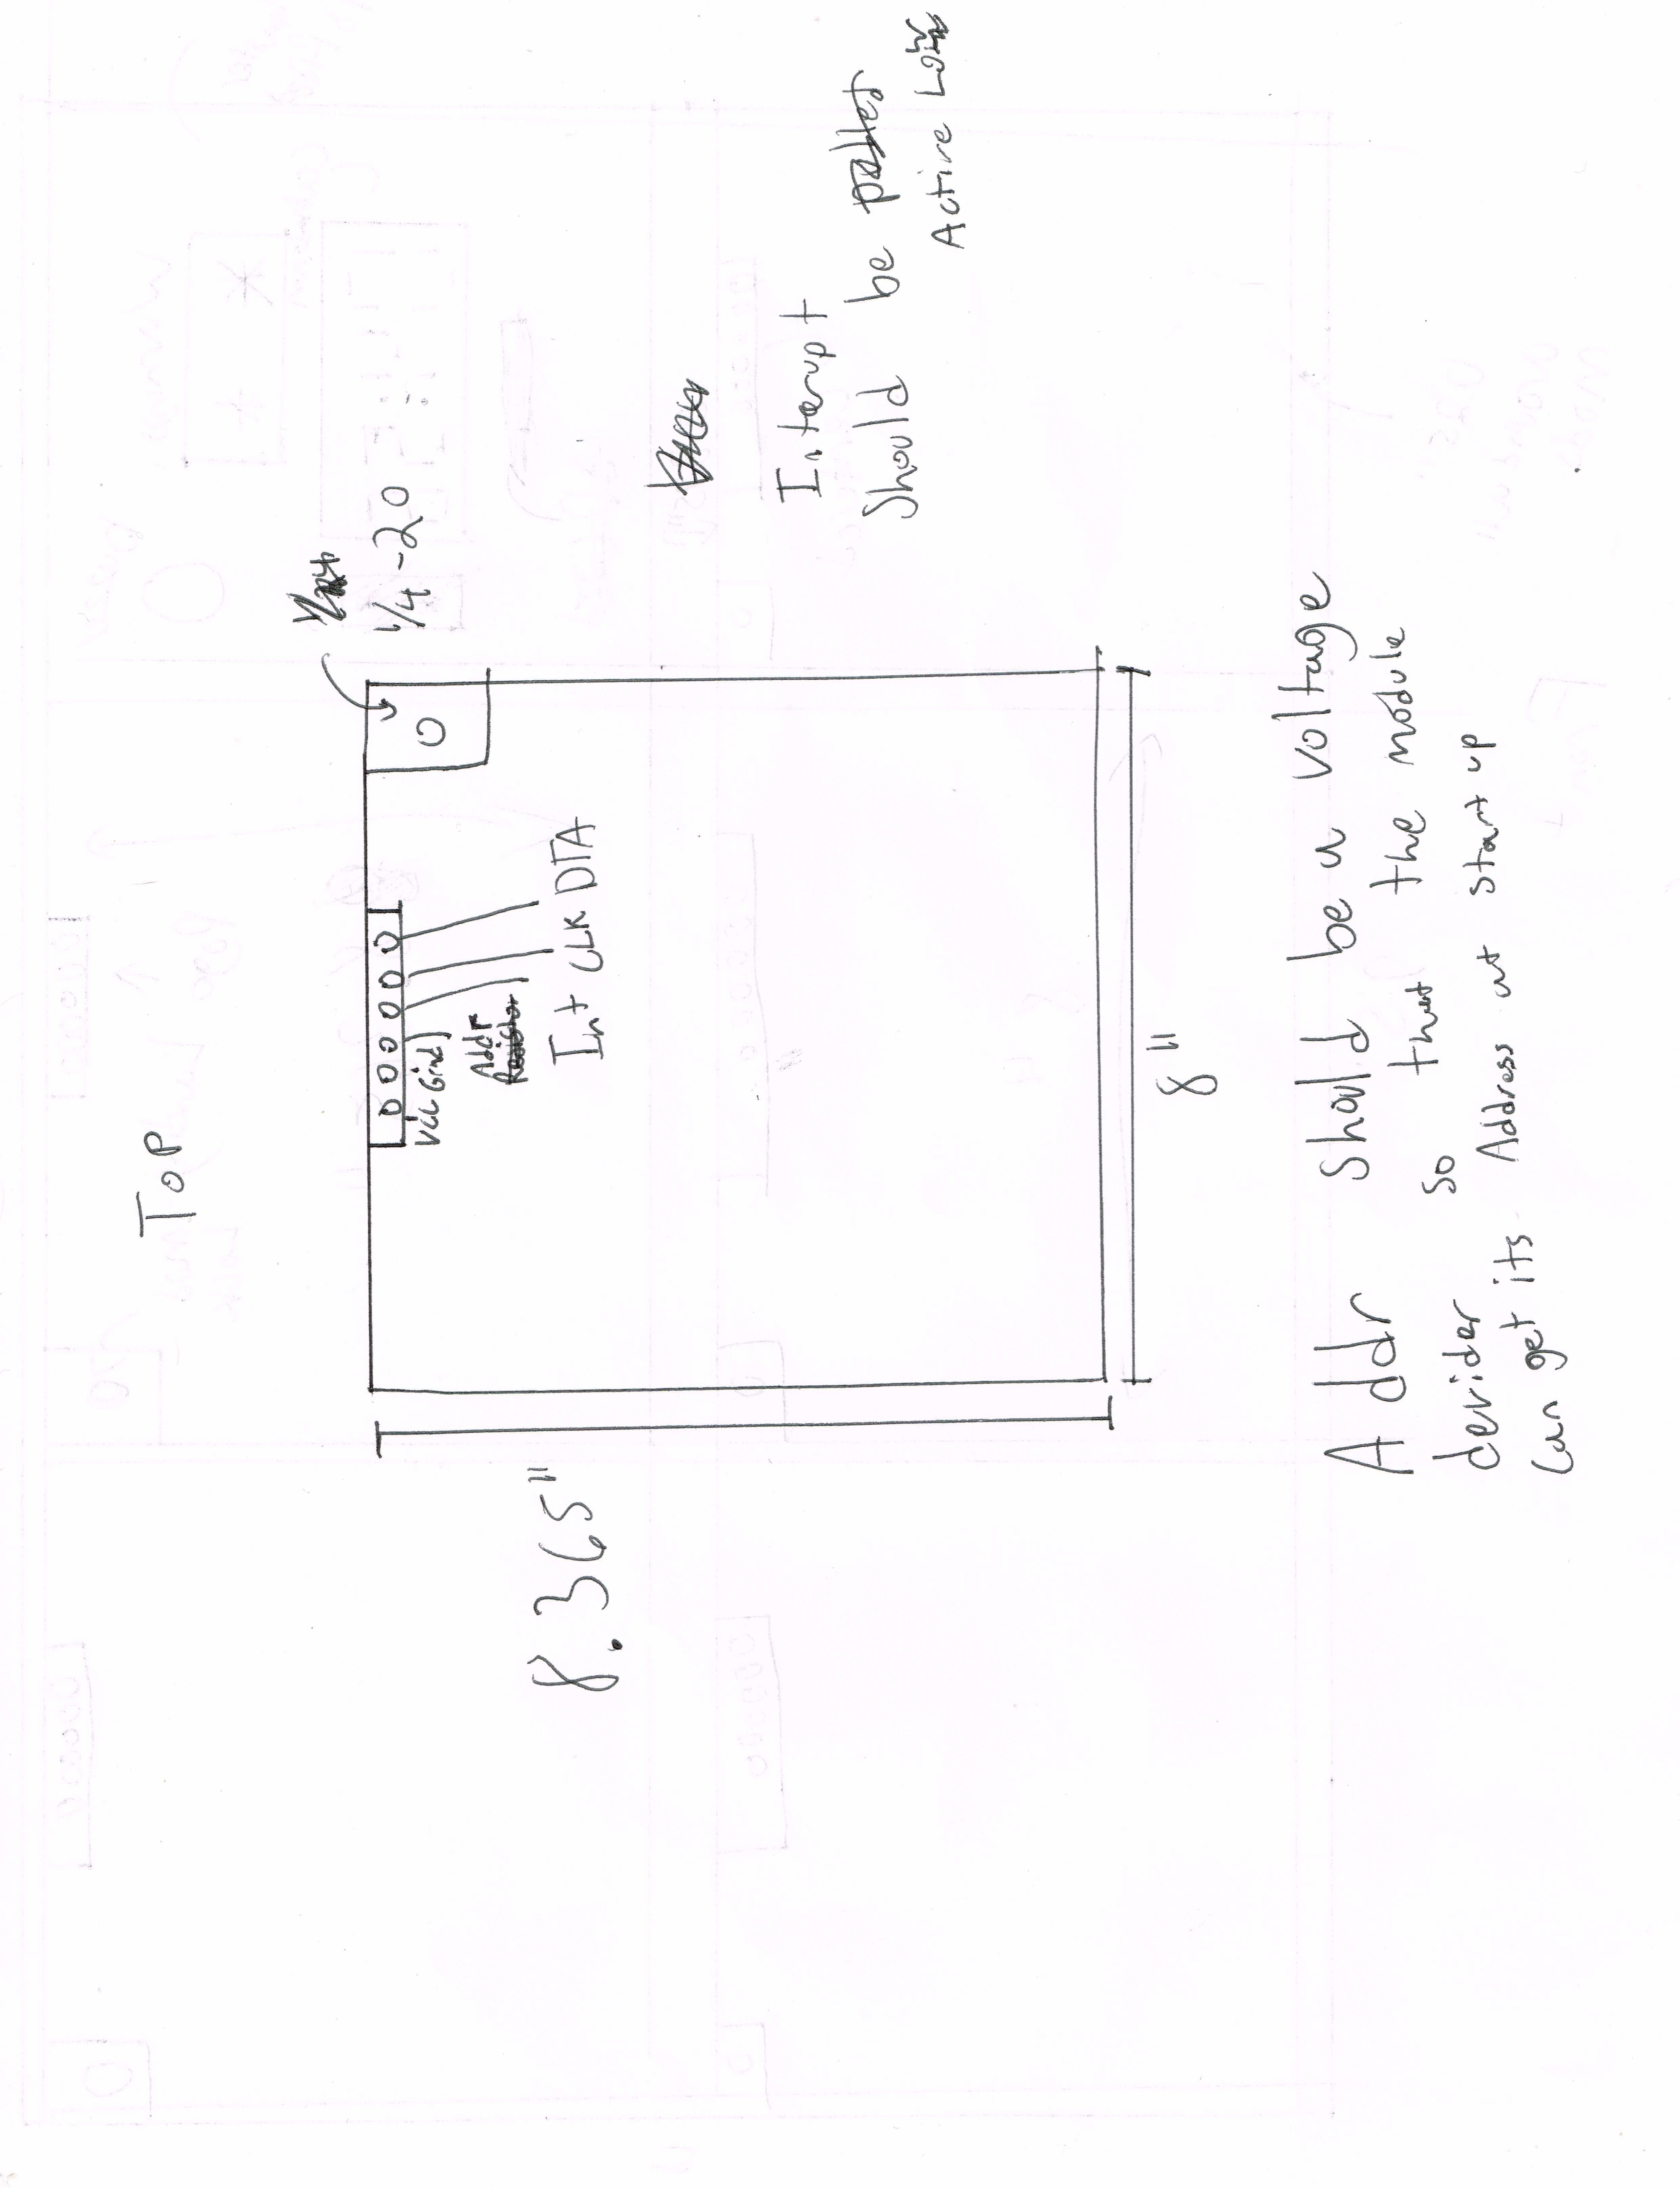 TOP
1/4-20
Vcc Gnd
Addr
Resistor
8.365"
Int CLK DTA
Interupt
Should be pulled
Active Low
8"
Addr should be a voltage
devider so that the module
can get its Address at start up